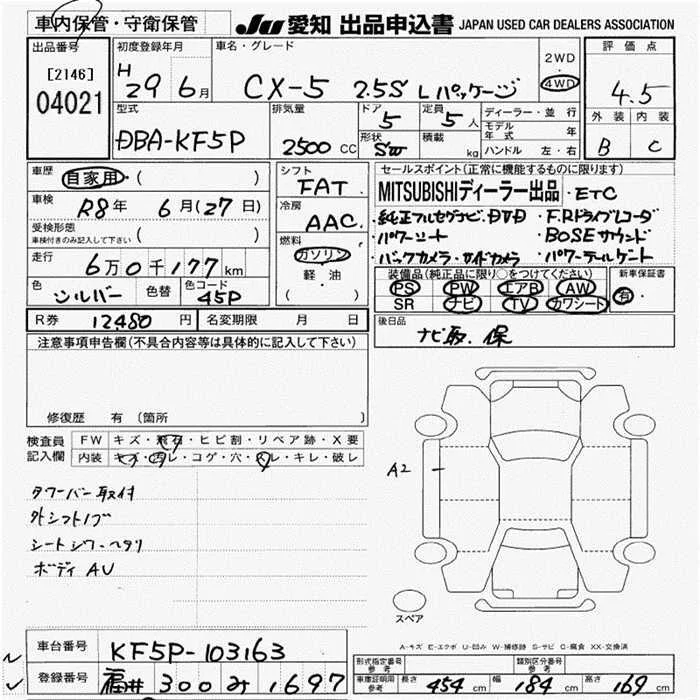 車内保管・守衛保管
JU 愛知 出品申込書 JAPAN USED CAR DEALERS ASSOCIATION
出品番号
[2146]
04021
初度登録年月
H29 6月
車名・グレード
CX-5 2.5S Lパッケージ
2WD
4WD
評価点
4.5
外装 内装
B C
型式
DBA-KF5P
排気量
2500 CC
ドア
5
形状
SW
定員
5人
積載
kg
ディーラー・並行
モデル年式 年
ハンドル 左・右
車歴
自家用・( )
車検
R8年 6月(27日)
受検形態
車検付きのみ記入して下さい ( )
走行
6万0千177km
色
シルバー
色替
色コード
45P
シフト
FAT
冷房
AAC
燃料
ガソリン
軽・油
( )
セールスポイント(正常に機能するものに限ります)
MITSUBISHIディーラー出品・ETC
・純正フルセグナビ、DVD ・F.Rドライブレコーダ
・パワーシート ・BOSEサウンド
・バックカメラ・サイドカメラ ・パワーテールゲート
装備品(純正品に限り○をつけてください)
PS PW エアB AW
SR ナビ TV カワシート
新車保証書
有・
R券 12,480円
名変期限 月 日
後日品
ナビ取、保
注意事項申告欄(不具合内容等は具体的に記入して下さい)
修復歴 有 〔箇所 〕
検査員記入欄
FW キズ・飛石・ヒビ割・リペア跡・X要
内装 キズ・汚レ・コゲ・穴・スレ・キレ・破レ
タワーバー取付
外シフトノブ
シートシワ・ヘタリ
ボディ AU
A2
スペア
A-キズ E-エクボ U-凹み W-補修跡 S-サビ C-腐食 XX-交換済
車台番号
KF5P-103163
登録番号
福井 300 み 1697
型式指定番号 参考
類別区分番号 参考
車庫証明用 参考 長さ 454cm 幅 184cm 高さ 169cm